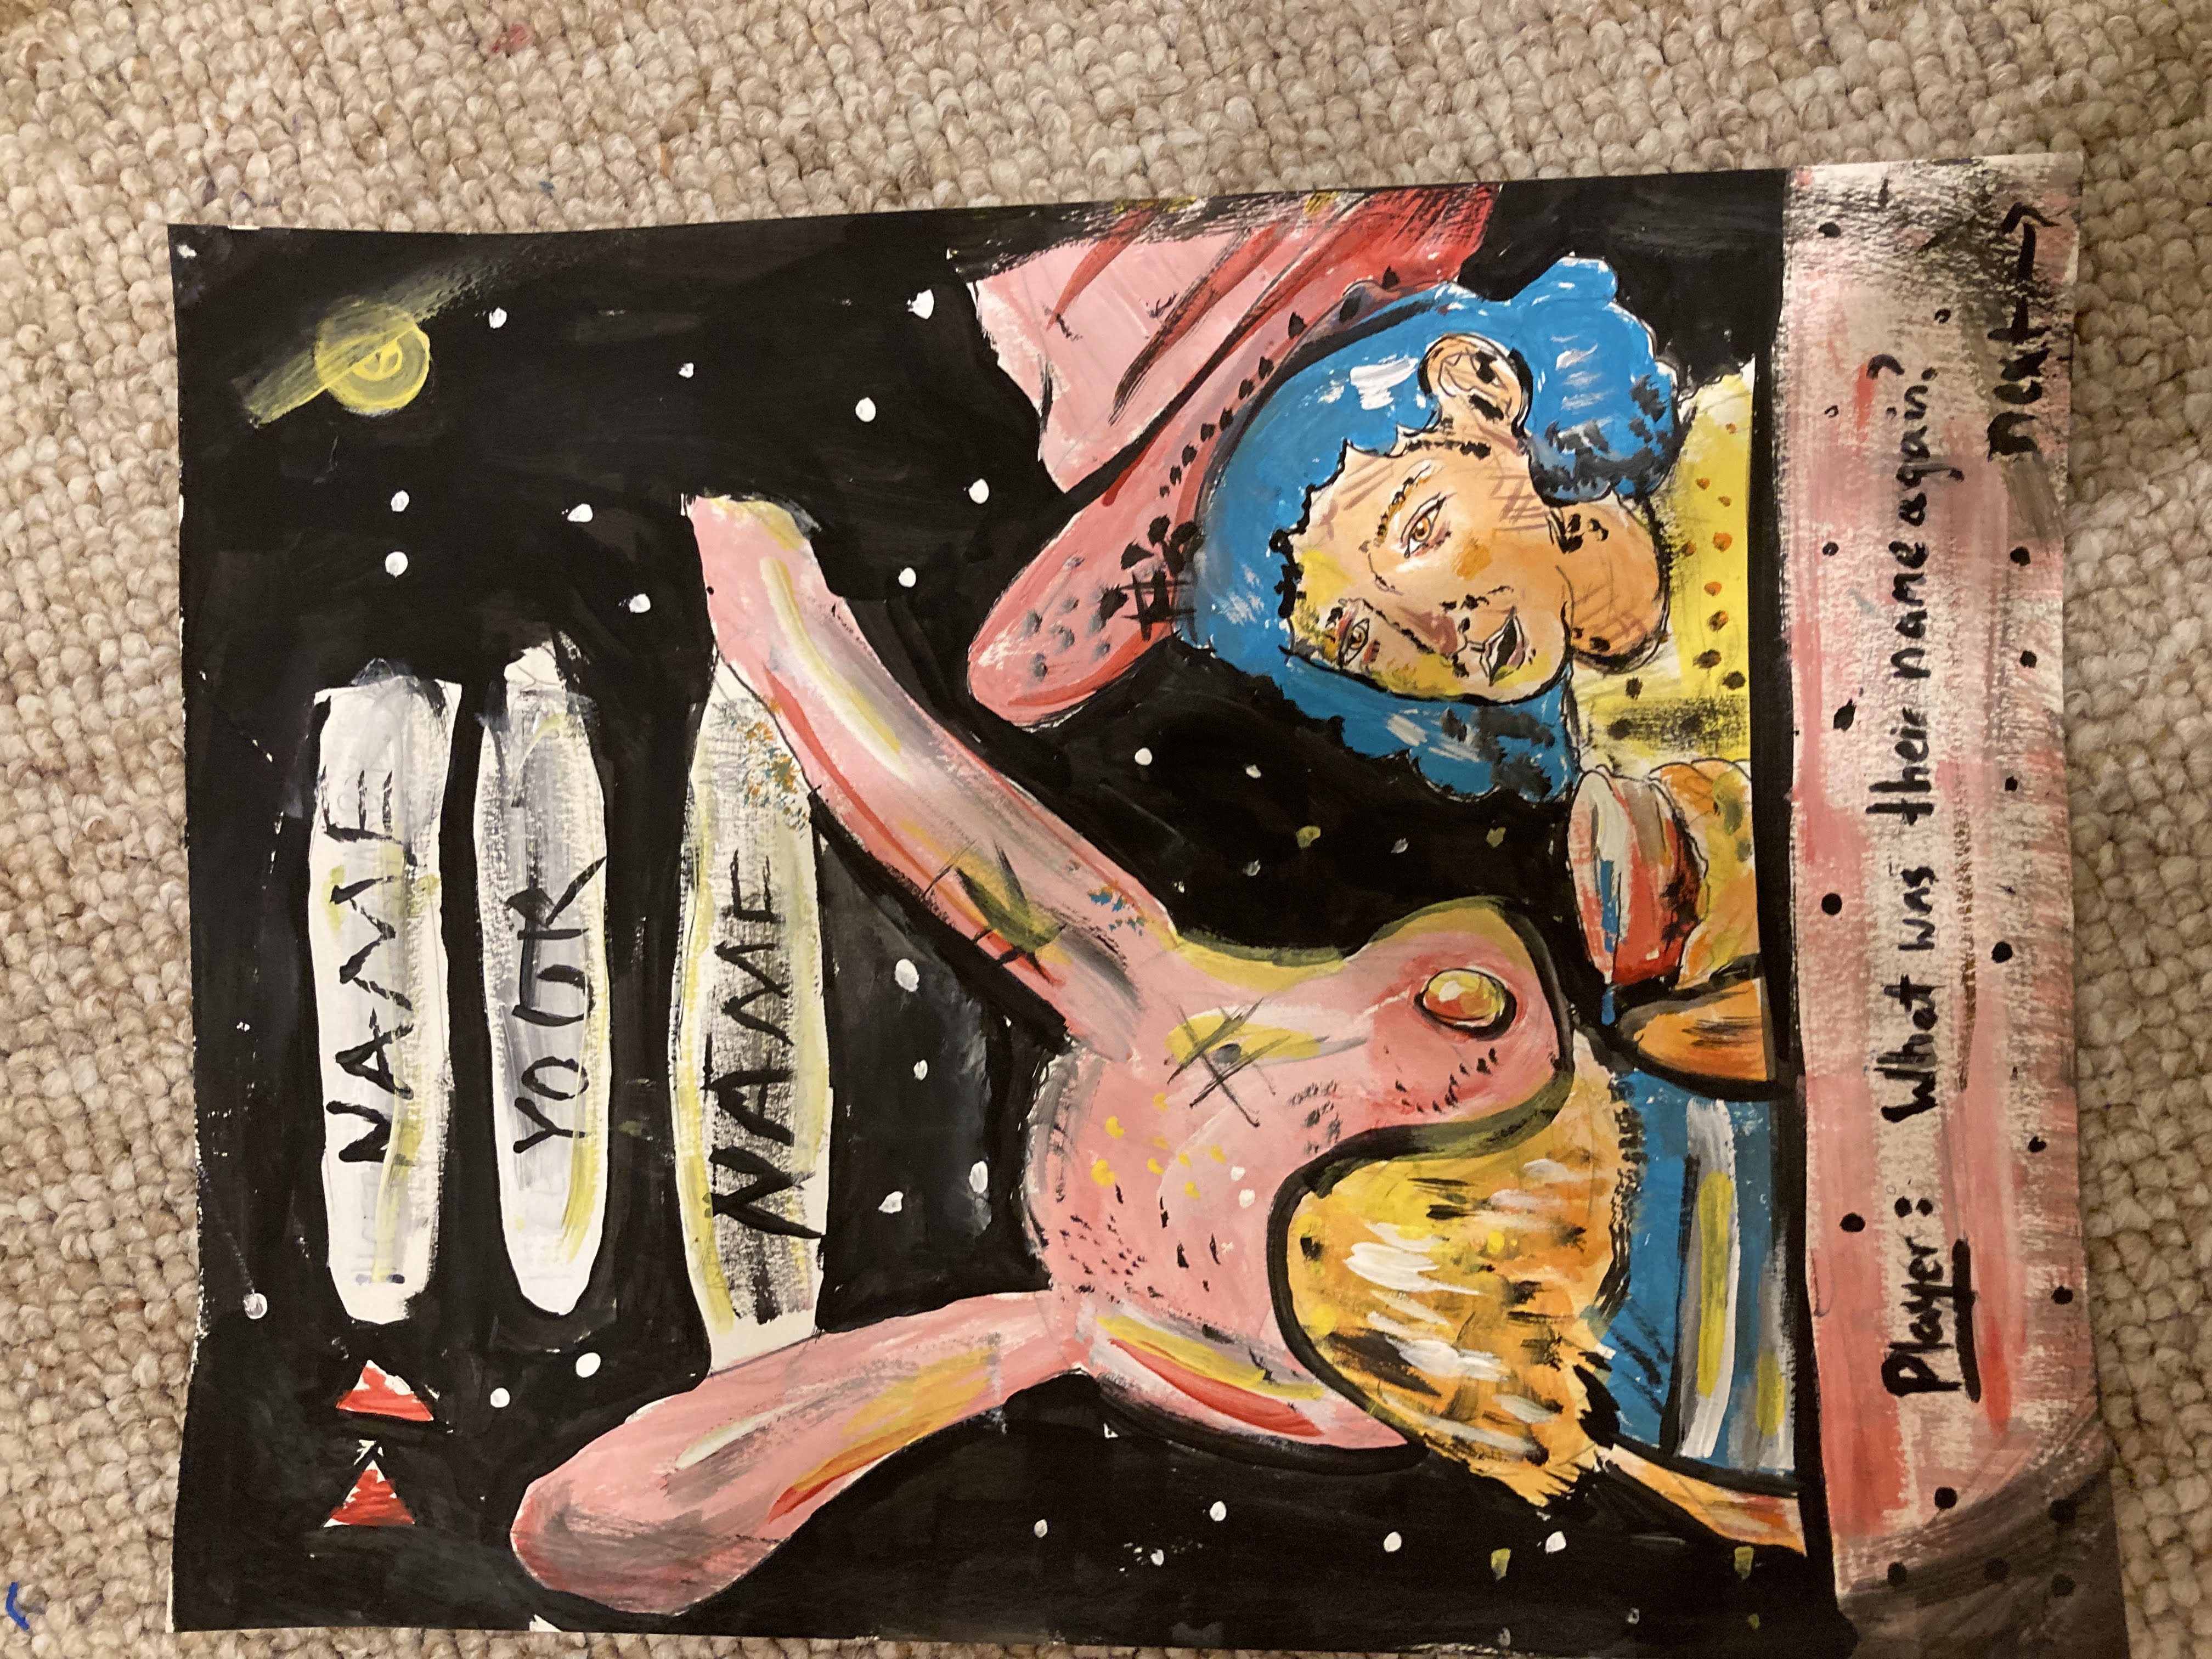 NAME
YOUR
NAME
Player: What was their name again?
next →